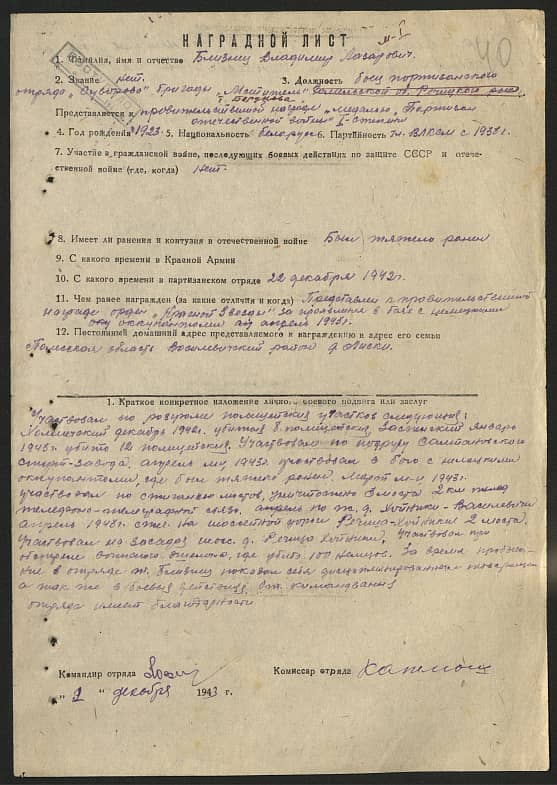 м-I
40
НАГРАДНОЙ ЛИСТ
1. Фамилия, имя и отчество Бливец Владимир Лазарович.
2. Звание нет. 3. Должность боец партизанского
отряда „Суворова" бригады „Мстители"
Представляется к правительственной награде „медалью „Партизан
отечественной войны" I-степени
4. Год рождения 1923 5. Национальность белорус 6. Партийность чл. ВЛКСМ с 1938 г.
7. Участие в гражданской войне, последующих боевых действиях по защите СССР и отече-
ственной войне (где, когда) нет.
8. Имеет ли ранения и контузия в отечественной войне Был тяжело ранен
9. С какого времени в Красной Армии
10. С какого времени в партизанском отряде 22 декабря 1942 г.
11. Чем ранее награжден (за какие отличия и когда) Представлен к правительственной
награде орден „Красной Звезды" за проявления в боях с немецкими
оккупантами апреля 1943 г.
12. Постоянный домашний адрес представляемого к награждению и адрес его семьи
область Василевичский район д.
1. Краткое конкретное изложение личного боевого подвига или заслуг
Участвовал по розгроми полицейских участков следующих:
декабрь 1942 г. убитых 8 полицейских, январь
1943 г. убито 12 полицейских. Участвовал по
спирт-завода, апрель м-ц 1943 г. участвовал в бою с немецкими
оккупантами, где был тяжело ранен. Март м-ц 1943 г.
участвовал по сжиганию мостов, уничтожено 3 моста 2 км
телеграфной связи, апрель по ж. д. Хойники - Василевичи
апрель 1943 г. сжег на шоссейной дороги Речица-Хойники 2 моста.
Участвовал на засадах шосс. д. Речица Хойники, Участвовал при
обстреле эшелона, где убито 100 немцев. За время
в отряде т. Бливец показал себя дисциплинированным
а так же в боевых действиях от командования
отряда имеет благодарности
Командир отряда Комиссар отряда
„ 1 " декабря 1943 г.